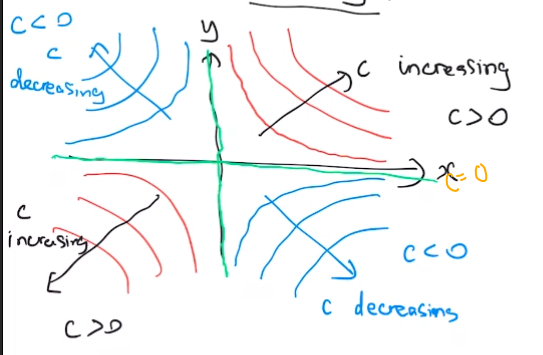 C<0
y
C
decreasing
C increasing
C>0
x
C=0
C
increasing
C<0
C decreasing
C>0